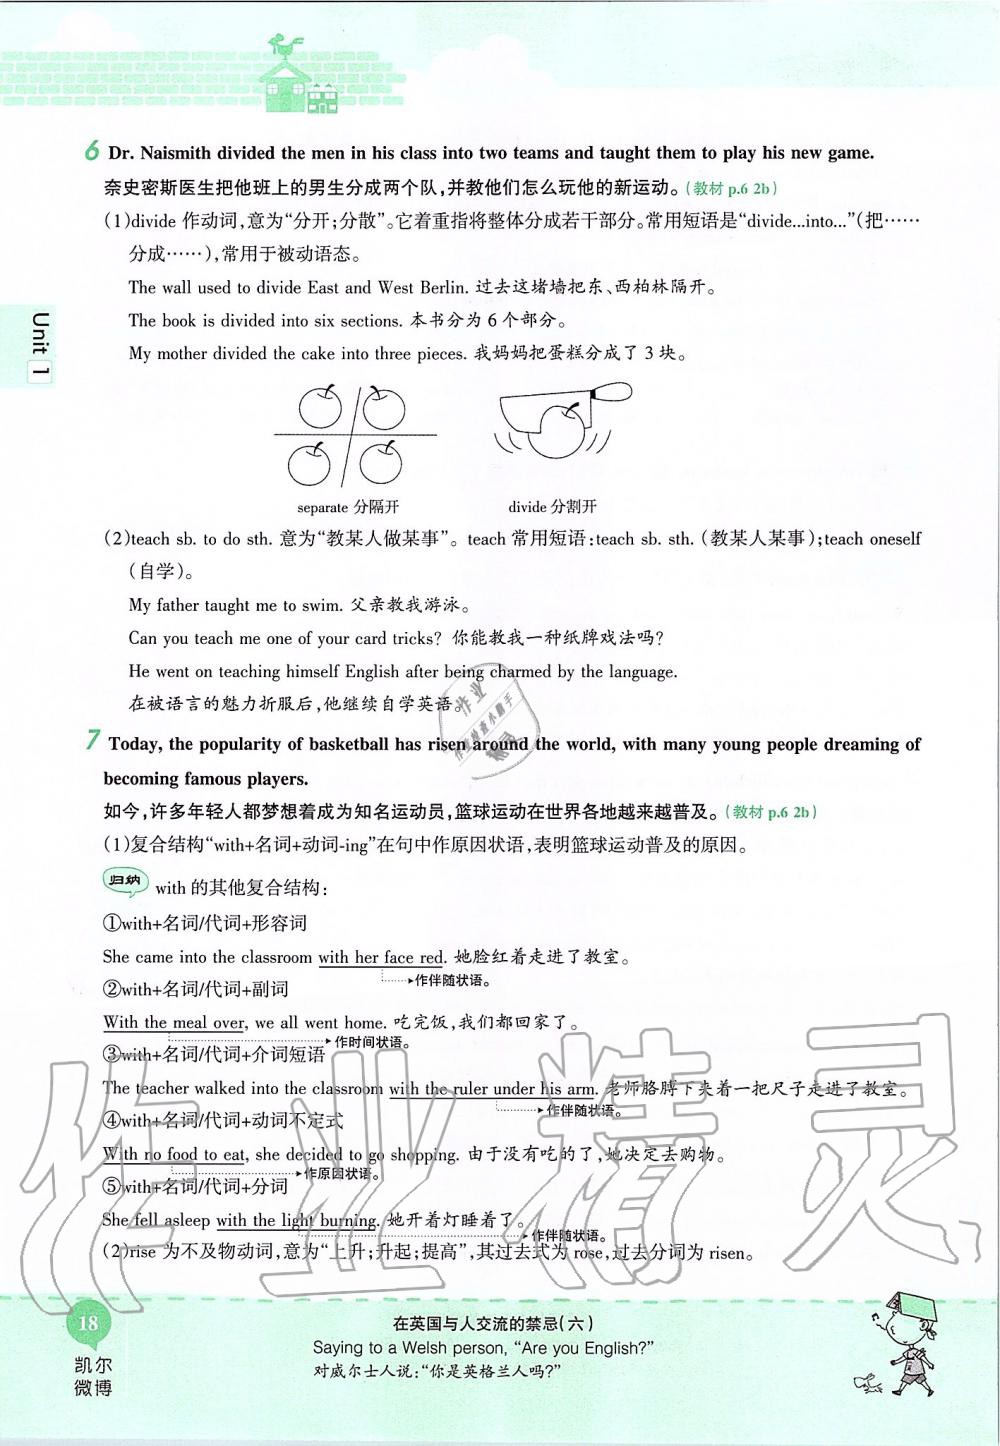 6 Dr. Naismith divided the men in his class into two teams and taught them to play his new game.
奈史密斯医生把他班上的男生分成两个队,并教他们怎么玩他的新运动。(教材 p.6 2b)
(1)divide 作动词,意为“分开;分散”。它着重指将整体分成若干部分。常用短语是“divide...into...”(把……
分成……),常用于被动语态。
The wall used to divide East and West Berlin. 过去这堵墙把东、西柏林隔开。
The book is divided into six sections. 本书分为 6 个部分。
My mother divided the cake into three pieces. 我妈妈把蛋糕分成了 3 块。
Unit 1
separate 分隔开 divide 分割开
(2)teach sb. to do sth. 意为“教某人做某事”。teach 常用短语:teach sb. sth.(教某人某事);teach oneself
(自学)。
My father taught me to swim. 父亲教我游泳。
Can you teach me one of your card tricks? 你能教我一种纸牌戏法吗?
He went on teaching himself English after being charmed by the language.
在被语言的魅力折服后,他继续自学英语。
7 Today, the popularity of basketball has risen around the world, with many young people dreaming of
becoming famous players.
如今,许多年轻人都梦想着成为知名运动员,篮球运动在世界各地越来越普及。(教材 p.6 2b)
(1)复合结构“with+名词+动词-ing”在句中作原因状语,表明篮球运动普及的原因。
归纳 with 的其他复合结构:
①with+名词/代词+形容词
She came into the classroom with her face red. 她脸红着走进了教室。
作伴随状语。
②with+名词/代词+副词
With the meal over, we all went home. 吃完饭,我们都回家了。
作时间状语。
③with+名词/代词+介词短语
The teacher walked into the classroom with the ruler under his arm. 老师胳膊下夹着一把尺子走进了教室。
作伴随状语。
④with+名词/代词+动词不定式
With no food to eat, she decided to go shopping. 由于没有吃的了,她决定去购物。
作原因状语。
⑤with+名词/代词+分词
She fell asleep with the light burning. 她开着灯睡着了。
作伴随状语。
(2)rise 为不及物动词,意为“上升;升起;提高”,其过去式为 rose,过去分词为 risen。
作业精灵
18
凯尔
微博
在英国与人交流的禁忌(六)
Saying to a Welsh person, “Are you English?”
对威尔士人说:“你是英格兰人吗?”